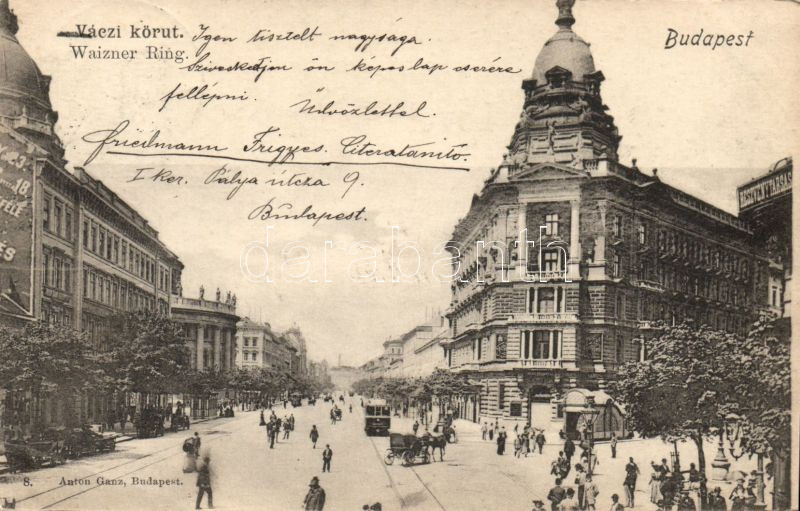 Váczi körut.
Waizner Ring.
Budapest
Igen tisztelt nagysága.
Sziveskedjen ön képeslap cserére
fellépni. Üdvözlettel.
Friedmann Frigyes. Citeratanitó.
I ker. Pálya útcza 9.
Budapest.
darabanth
23
18
FÉLE
ÉS
8. Anton Ganz, Budapest.